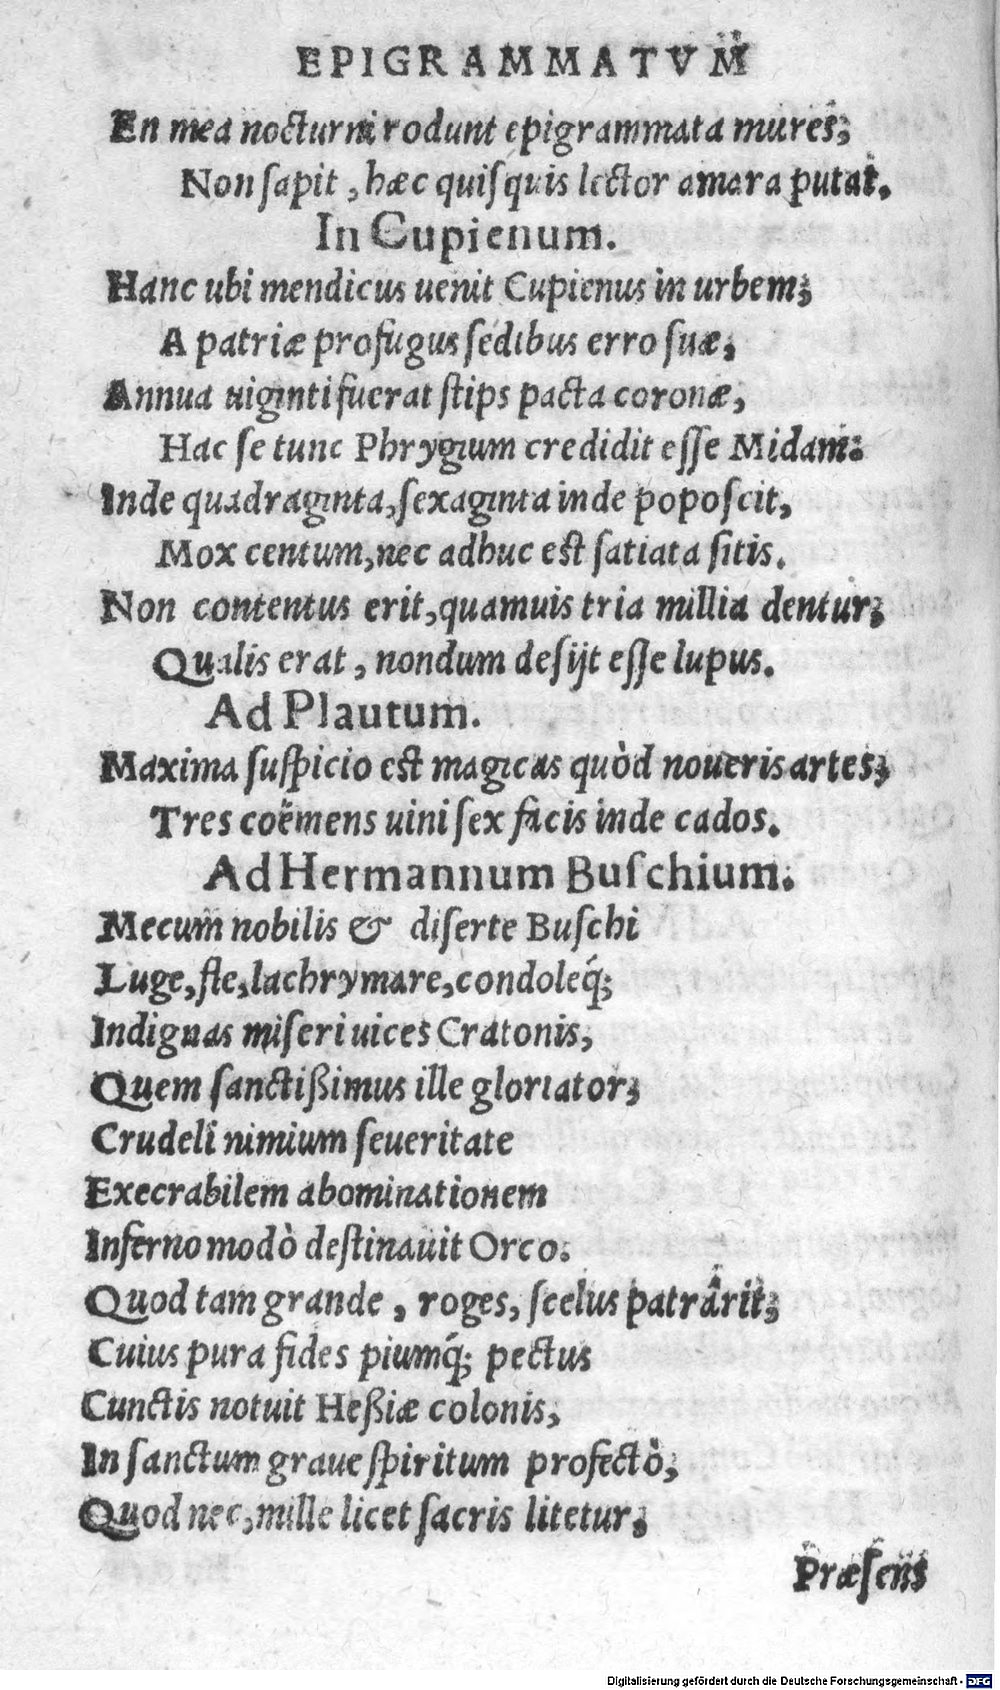 EPIGRAMMATVM
En mea nocturni rodunt epigrammata mures;
Non sapit, hæc quisquis lector amara putat.
In Cupienum.
Hanc ubi mendicus uenit Cupienus in urbem;
A patriæ profugus sedibus erro suæ;
Annua uiginti fuerat stips pacta coronæ,
Hac se tunc Phrygium credidit esse Midam.
Inde quadraginta, sexaginta inde poposcit,
Mox centum, nec adhuc est satiata sitis.
Non contentus erit, quamuis tria millia dentur;
Qualis erat, nondum desijt esse lupus.
Ad Plautum.
Maxima suspicio est magicas quòd noueris artes;
Tres coëmens uini sex facis inde cados.
Ad Hermannum Buschium.
Mecum nobilis & diserte Buschi
Luge, fle, lachrymare, condoleq́;
Indignas miseri uices Cratonis,
Quem sanctißimus ille gloriator;
Crudeli nimium seueritate
Execrabilem abominationem
Inferno modò destinauit Orco.
Quod tam grande, roges, scelus patrârit;
Cuius pura fides piumq́; pectus
Cunctis notuit Heßiæ colonis,
In sanctum graue spiritum profectò,
Quod nec, mille licet sacris litetur;
Præsens
Digitalisierung gefördert durch die Deutsche Forschungsgemeinschaft - DFG